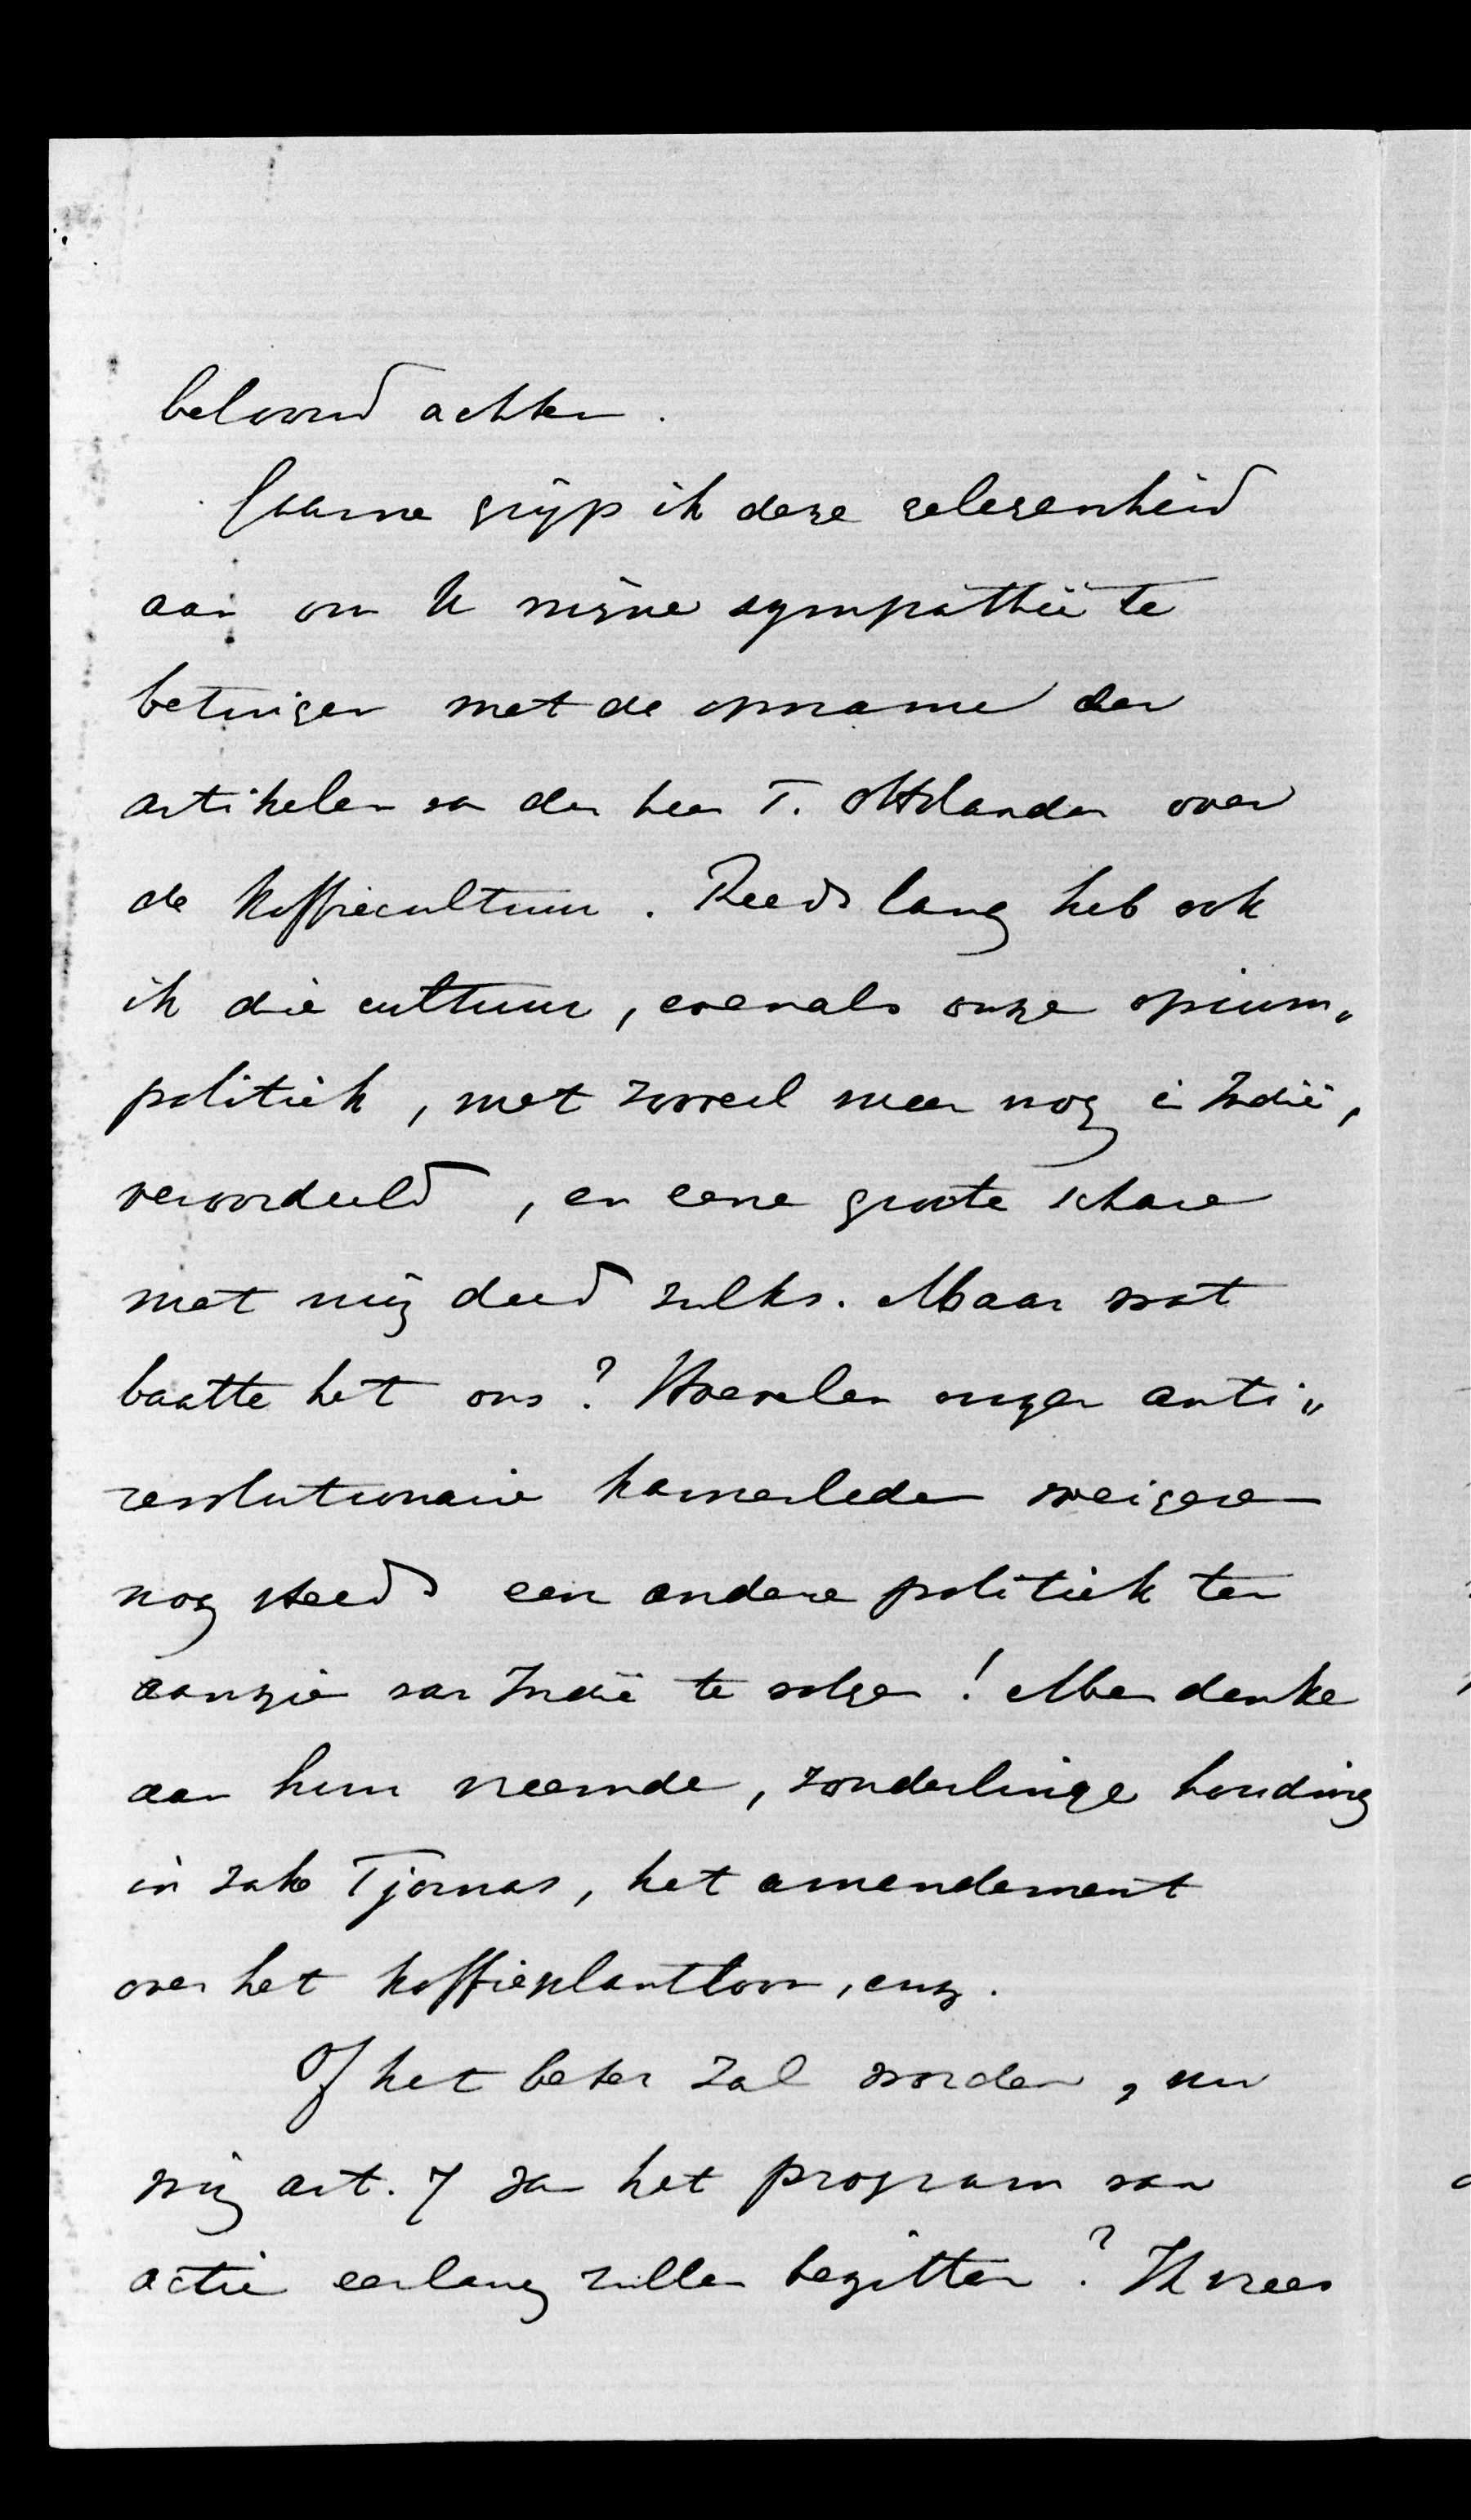 beloond achten.
Gaarne grijp ik deze gelegenheid
aan om U mijne sympathie te
betuigen met de opname der
artikelen van den heer T. Ottolander over
de koffiecultuur. Reeds lang heb ook
ik die cultuur, evenals onze opium„
politiek, met zooveel meer nog in Indië,
veroordeeld, en eene groote schare
met mij deed zulks. Maar wat
baatte het ons? Hoevelen onzer anti„
revolutionaire kamerleden weigeren
nog steeds een andere politiek ten
aanzien van Indië te volgen! Men denke
aan hun vreemde, zonderlinge houding
in zake Tjomas, het amendement
over het koffieplantloon, enz.
Of het beter zal worden, nu
wij art. 7 van het program van
actie eerlang zullen bezitten? Ik vrees